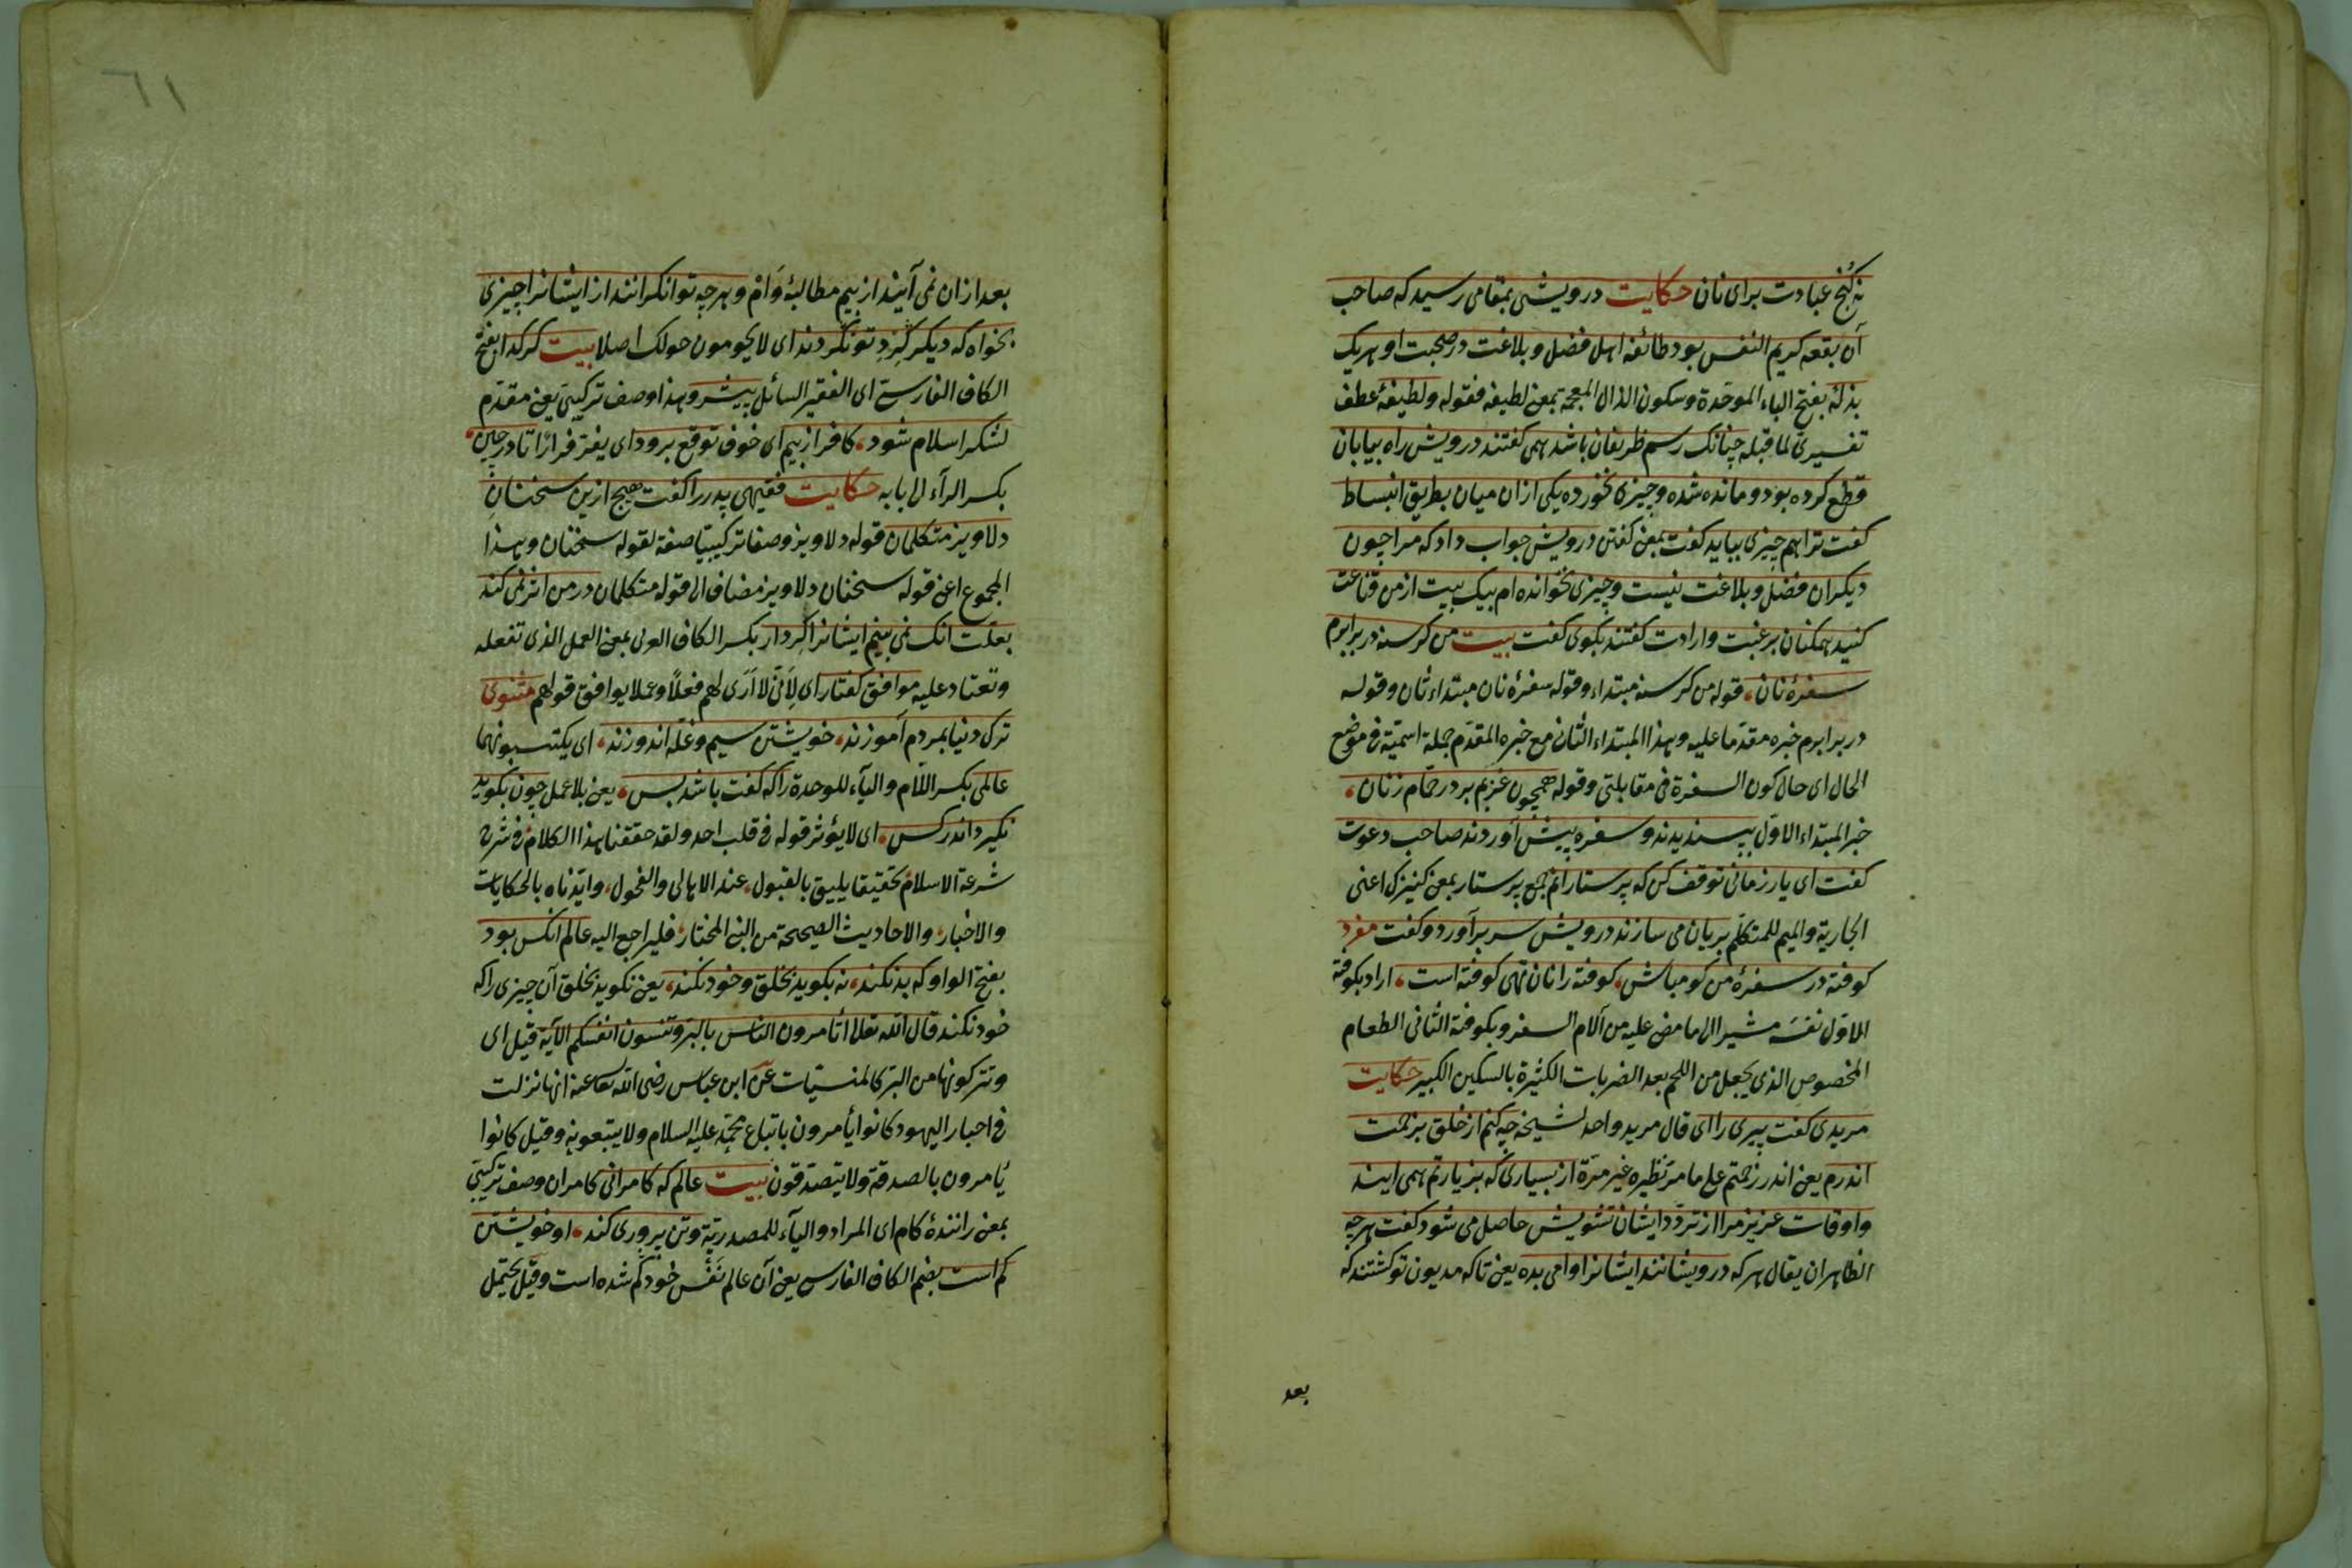 نه کنج عبادت برای نان حکایت درویشی بمقامی رسید که صاحب
آن بقعه کریم النفس بود طائفه اهل فضل و بلاغت در صحبت او هریک
بذلهٔ بفتح الباء الموحدة وسکون الذال المعجمة بمعنی لطیفه فقوله ولطیفهٔ عطف
تفسیری لما قبله چنانک رسم ظریفان باشد همی گفتند درویش راه بیابان
قطع کرده بود ومانده شده وچیزی نخورده یکی ازان میان بطریق انبساط
گفت ترا هم چیزی بباید گفت بمعنی گفتن درویش جواب داد که مرا چون
دیگران فضل وبلاغت نیست وچیزی نخوانده ام بیک بیت از من قناعت
کنید همکنان برغبت وارادت گفتند بگوی گفت بیت من گرسنه در برابرم
سفرهٔ نان، قوله من گرسنه مبتداء وقوله سفرهٔ نان مبتداء ثان وقوله
در برابرم خبره مقدما علیه وهذا المبتداء الثانی مع خبره المقدم جملة اسمیة فی موضع
الحال ای حال کون السفرة فی مقابلتی وقوله همچون عزبم بر در حمام زنان،
خبر المبتداء الاول بپسندیدند وسفره پیش آوردند صاحب دعوت
گفت ای یار زمانی توقف کن که پرستارانم جمع پرستار بمعنی کنیزک اعنی
الجاریة والمیم للمتکلم بریان می سازند درویش سر برآورد وگفت مفرد
کوفته در سفرهٔ من گو مباش، کوفته را نان تهی کوفته است، اراد بکوفتهٔ
الاول نفسه مشیرا الی ما مضی علیه من آلام السفر وبکوفتهٔ الثانی الطعام
المخصوص الذی یجعل من اللحم بعد الضربات الکثیرة بالسکین الکبیر حکایت
مریدی گفت پیری را ای قال مرید واحد لشیخه چه کنم از خلق برنجمت
اندرم یعنی اندر زحمتم علی ما مر نظیره غیر مرة از بسیاری که بزیارتم همی ایند
واوقات عزیز مرا از تردد ایشان تشویش حاصل می شود گفت هرچه
الظاهر ان یقال هرکه درویشانند ایشانرا وامی بده یعنی تاکه مدیون تو گشتند که
بعد
بعد ازان نمی آیند از بیم مطالبهٔ وام وهرچه توانگرانند از ایشانرا چیزی
بخواه که دیگر گرد تو نگردند ای لا یحومون حولک اصلا بیت گر گدا بفتح
الکاف الفارسی ای الفقیر السائل پیشرو وهذا وصف ترکیبی یعنی مقدم
لشکر اسلام شود، کافر از بیم ای خوف توقع برود ای یفتر فرارا تا در چین،
بکسر الرآء ای بابه حکایت فقیهی پدر را گفت هیچ ازین سخنان
دلاویز متکلمان قوله دلاویز وصفا ترکیبیا صفة لقوله سخنان وهذا
المجموع اعنی قوله سخنان دلاویز مضاف الی قوله متکلمان در من اثر نمی کند
بعلت انک نمی بینم ایشانرا کردار بکسر الکاف العربی بمعنی العمل الذی تفعله
وتعتاد علیه موافق گفتار ای لانی لا اری لهم فعلا وعملا یوافق قولهم مثنوی
ترک دنیا بمردم آموزند، خویشتن سیم وغله اندوزند، ای یکتسبونهما
عالمی بکسر اللام والیآء للوحدة را که گفت باشد بس، یعنی بلا عمل چون بگوید
نگیرد اندر کس، ای لا یؤثر قوله فی قلب احد ولقد حققنا هذا الکلام فی شرح
شرعة الاسلام تحقیقا یلیق بالقبول، عند الاهالی والفحول، وایدناه بالحکایات
والاخبار، والاحادیث الصحیحة من النبی المختار، فلیراجع الیه عالم آنکس بود
بفتح الواو که بد نکند، نه بگوید بخلق وخود نکند، یعنی نگوید بخلق آن چیزی را که
خود نکند قال الله تعالی اتأمرون الناس بالبر وتنسون انفسکم الآیة قیل ای
وتترکونها من البر کالمنسیات عن ابن عباس رضی الله تعا عنه انها نزلت
فی احبار الیهود کانوا یأمرون باتباع محمد علیه السلام ولا یتبعونه وقیل کانوا
یأمرون بالصدقة ولا یتصدقون بیت عالم که کامرانی کامران وصف ترکیبی
بمعنی رانندهٔ کام ای المراد والیآء للمصدریة وتن پروری کند، او خویشتن
گم است بضم الکاف الفارسی یعنی آن عالم نفس خود گم شده است وقیل یحتمل